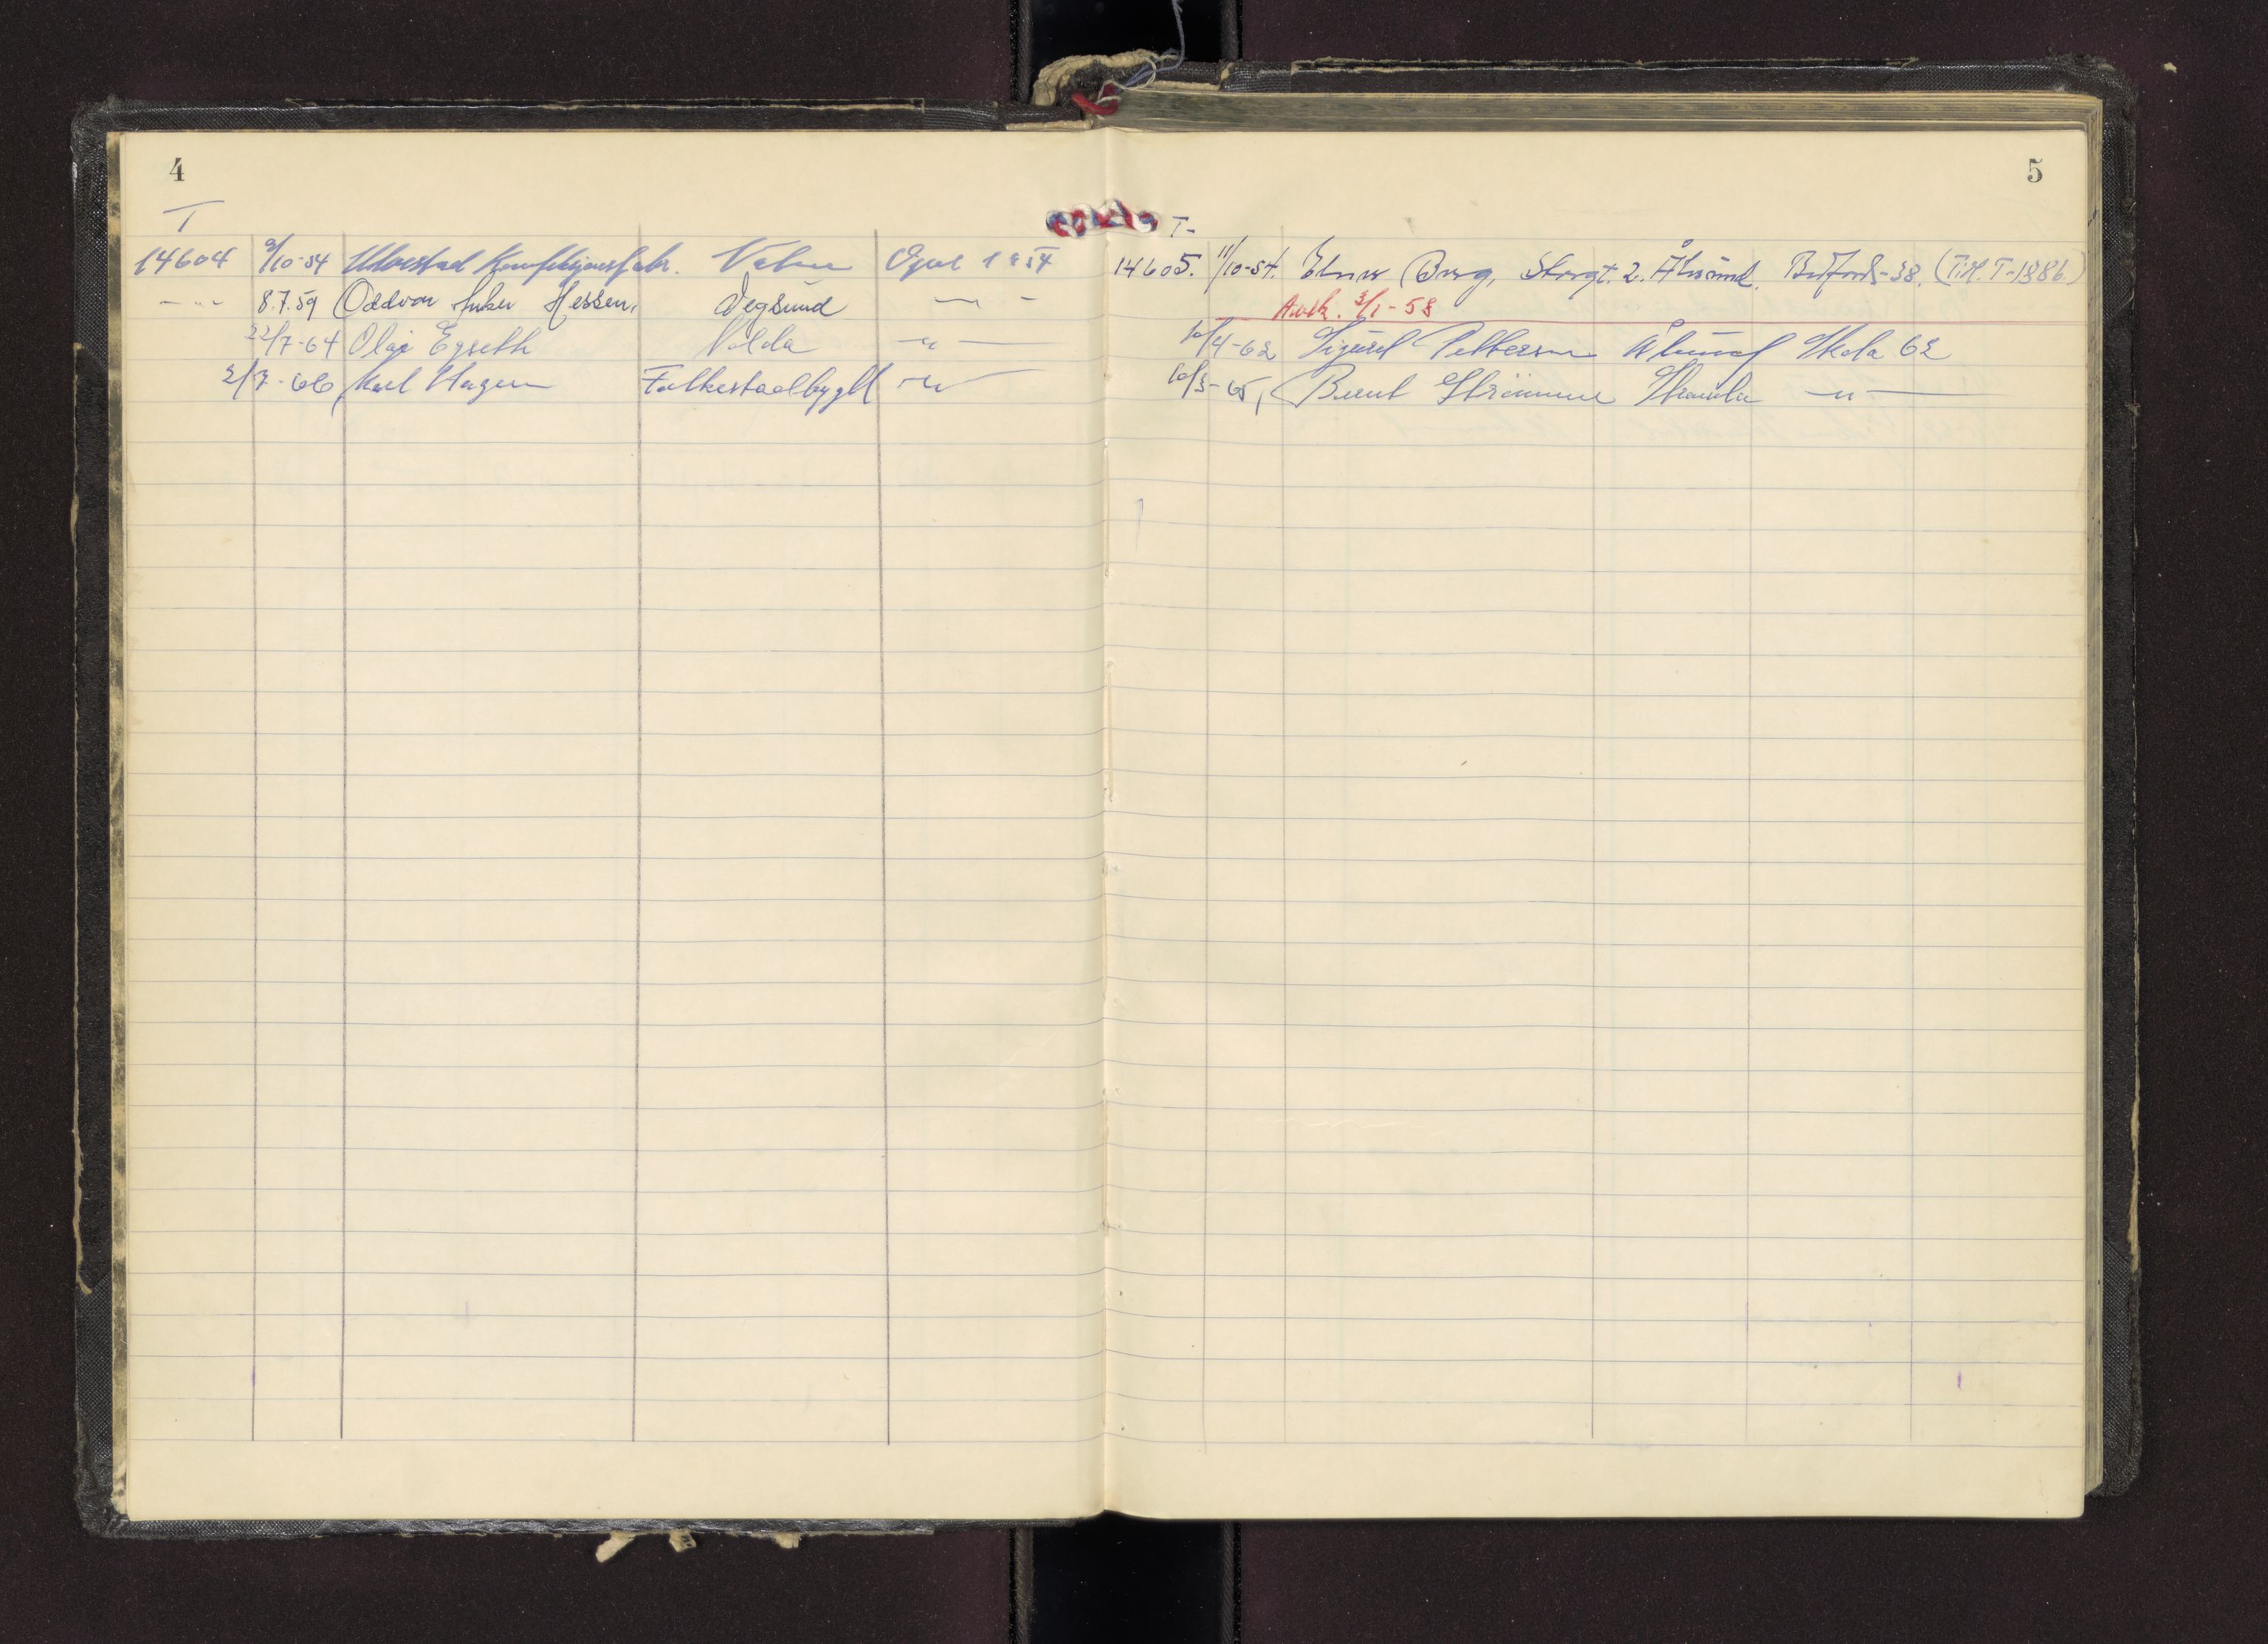 4
T
14604 9/10-54 Ulvestad Konfeksjonsfabr. Opel 1954
—"— 8.7.59 Oddvar Hessen, Vegsund —"—
22/7-64 Olaf Egseth Volda —"—
2/7-66 Karl Hagen Folkestadbygd —"—
5
T-
14605. 11/10-54. Berg, Storgt. 2. Ålesund. B. Ford-38. (Tilh. T-1886)
Avsk. 3/1-58
10/4-62 Sigurd Pettersen Ålesund Skoda 62
10/3-65, Bernt Strømme Stranda —"—